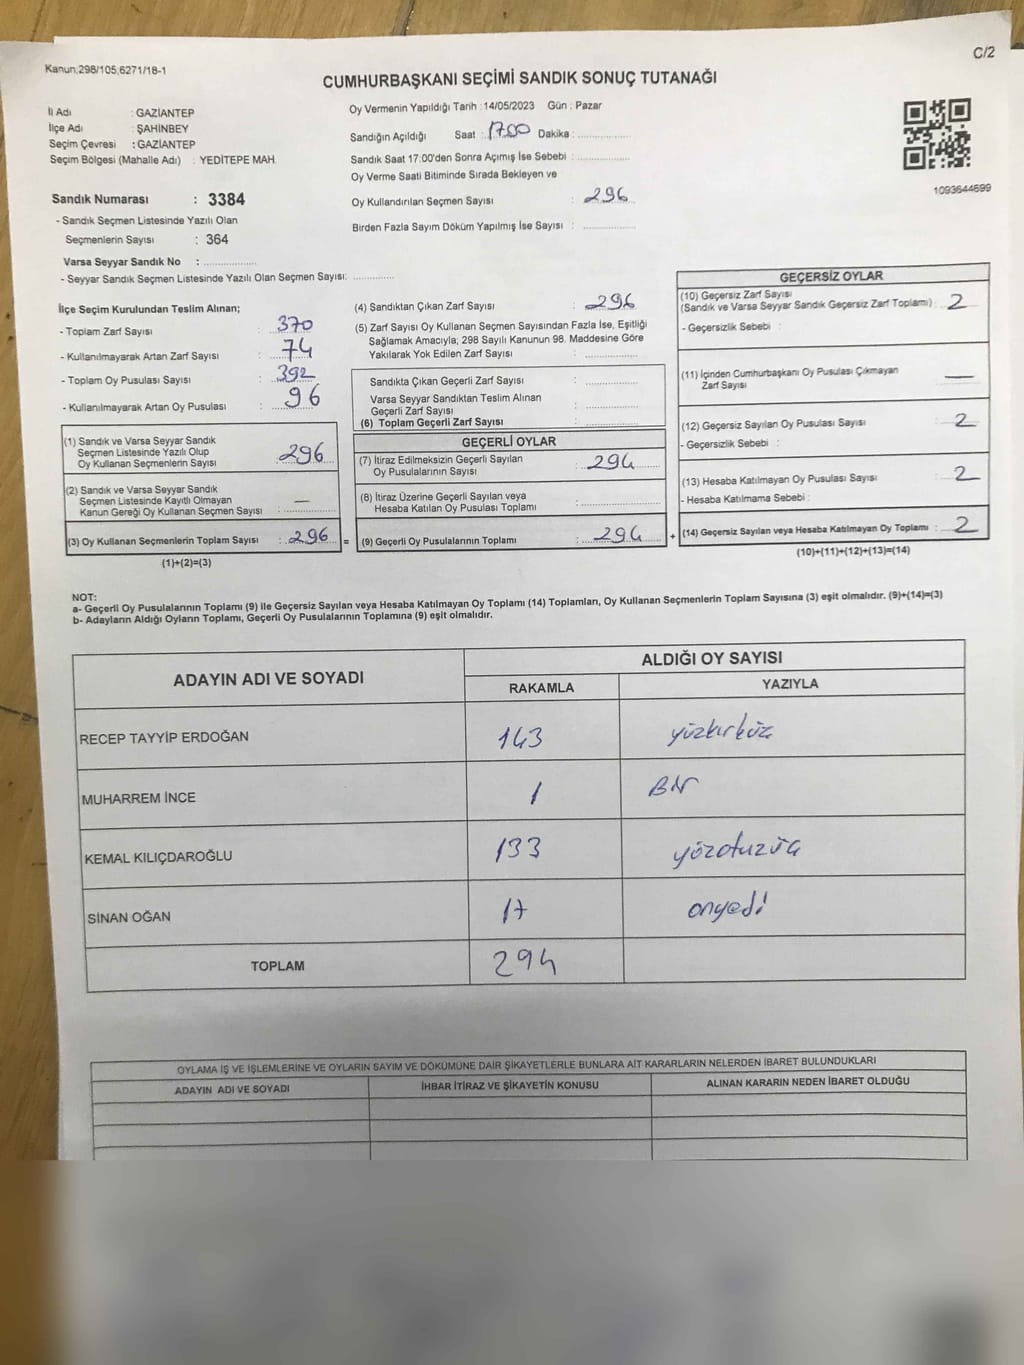 Kanun;298/105,6271/18-1
C/2
CUMHURBAŞKANI SEÇİMİ SANDIK SONUÇ TUTANAĞI
İl Adı : GAZİANTEP
İlçe Adı : ŞAHİNBEY
Seçim Çevresi : GAZİANTEP
Seçim Bölgesi (Mahalle Adı) : YEDİTEPE MAH.
Sandık Numarası : 3384
- Sandık Seçmen Listesinde Yazılı Olan
Seçmenlerin Sayısı : 364
Varsa Seyyar Sandık No :
- Seyyar Sandık Seçmen Listesinde Yazılı Olan Seçmen Sayısı:
Oy Vermenin Yapıldığı Tarih :14/05/2023 Gün : Pazar
Sandığın Açıldığı Saat : 17.00 Dakika :
Sandık Saat 17:00'den Sonra Açımış İse Sebebi :
Oy Verme Saati Bitiminde Sırada Bekleyen ve
Oy Kullandırılan Seçmen Sayısı : 296
Birden Fazla Sayım Döküm Yapılmış İse Sayısı :
1093644699
İlçe Seçim Kurulundan Teslim Alınan;
- Toplam Zarf Sayısı : 370
- Kullanılmayarak Artan Zarf Sayısı : 74
- Toplam Oy Pusulası Sayısı : 392
- Kullanılmayarak Artan Oy Pusulası : 96
(1) Sandık ve Varsa Seyyar Sandık
Seçmen Listesinde Yazılı Olup
Oy Kullanan Seçmenlerin Sayısı : 296
(2) Sandık ve Varsa Seyyar Sandık
Seçmen Listesinde Kayıtlı Olmayan
Kanun Gereği Oy Kullanan Seçmen Sayısı : —
(3) Oy Kullanan Seçmenlerin Toplam Sayısı : 296 =
(1)+(2)=(3)
(4) Sandıktan Çıkan Zarf Sayısı : 296
(5) Zarf Sayısı Oy Kullanan Seçmen Sayısından Fazla İse, Eşitliği
Sağlamak Amacıyla; 298 Sayılı Kanunun 98. Maddesine Göre
Yakılarak Yok Edilen Zarf Sayısı :
Sandıkta Çıkan Geçerli Zarf Sayısı :
Varsa Seyyar Sandıktan Teslim Alınan
Geçerli Zarf Sayısı :
(6) Toplam Geçerli Zarf Sayısı :
GEÇERLİ OYLAR
(7) İtiraz Edilmeksizin Geçerli Sayılan
Oy Pusulalarının Sayısı : 294
(8) İtiraz Üzerine Geçerli Sayılan veya
Hesaba Katılan Oy Pusulası Toplamı :
(9) Geçerli Oy Pusulalarının Toplamı : 294 +
GEÇERSİZ OYLAR
(10) Geçersiz Zarf Sayısı
(Sandık ve Varsa Seyyar Sandık Geçersiz Zarf Toplamı) : 2
- Geçersizlik Sebebi :
(11) İçinden Cumhurbaşkanı Oy Pusulası Çıkmayan
Zarf Sayısı —
(12) Geçersiz Sayılan Oy Pusulası Sayısı : 2
- Geçersizlik Sebebi :
(13) Hesaba Katılmayan Oy Pusulası Sayısı : 2
- Hesaba Katılmama Sebebi :
(14) Geçersiz Sayılan veya Hesaba Katılmayan Oy Toplamı : 2
(10)+(11)+(12)+(13)=(14)
NOT:
a- Geçerli Oy Pusulalarının Toplamı (9) ile Geçersiz Sayılan veya Hesaba Katılmayan Oy Toplamı (14) Toplamları, Oy Kullanan Seçmenlerin Toplam Sayısına (3) eşit olmalıdır. (9)+(14)=(3)
b- Adayların Aldığı Oyların Toplamı, Geçerli Oy Pusulalarının Toplamına (9) eşit olmalıdır.
ADAYIN ADI VE SOYADI
ALDIĞI OY SAYISI
RAKAMLA YAZIYLA
RECEP TAYYİP ERDOĞAN 143 yüzkırküç
MUHARREM İNCE 1 Bir
KEMAL KILIÇDAROĞLU 133 yüzotuzüç
SİNAN OĞAN 17 onyedi
TOPLAM 294
OYLAMA İŞ VE İŞLEMLERİNE VE OYLARIN SAYIM VE DÖKÜMÜNE DAİR ŞİKAYETLERLE BUNLARA AİT KARARLARIN NELERDEN İBARET BULUNDUKLARI
ADAYIN ADI VE SOYADI İHBAR İTİRAZ VE ŞİKAYETİN KONUSU ALINAN KARARIN NEDEN İBARET OLDUĞU